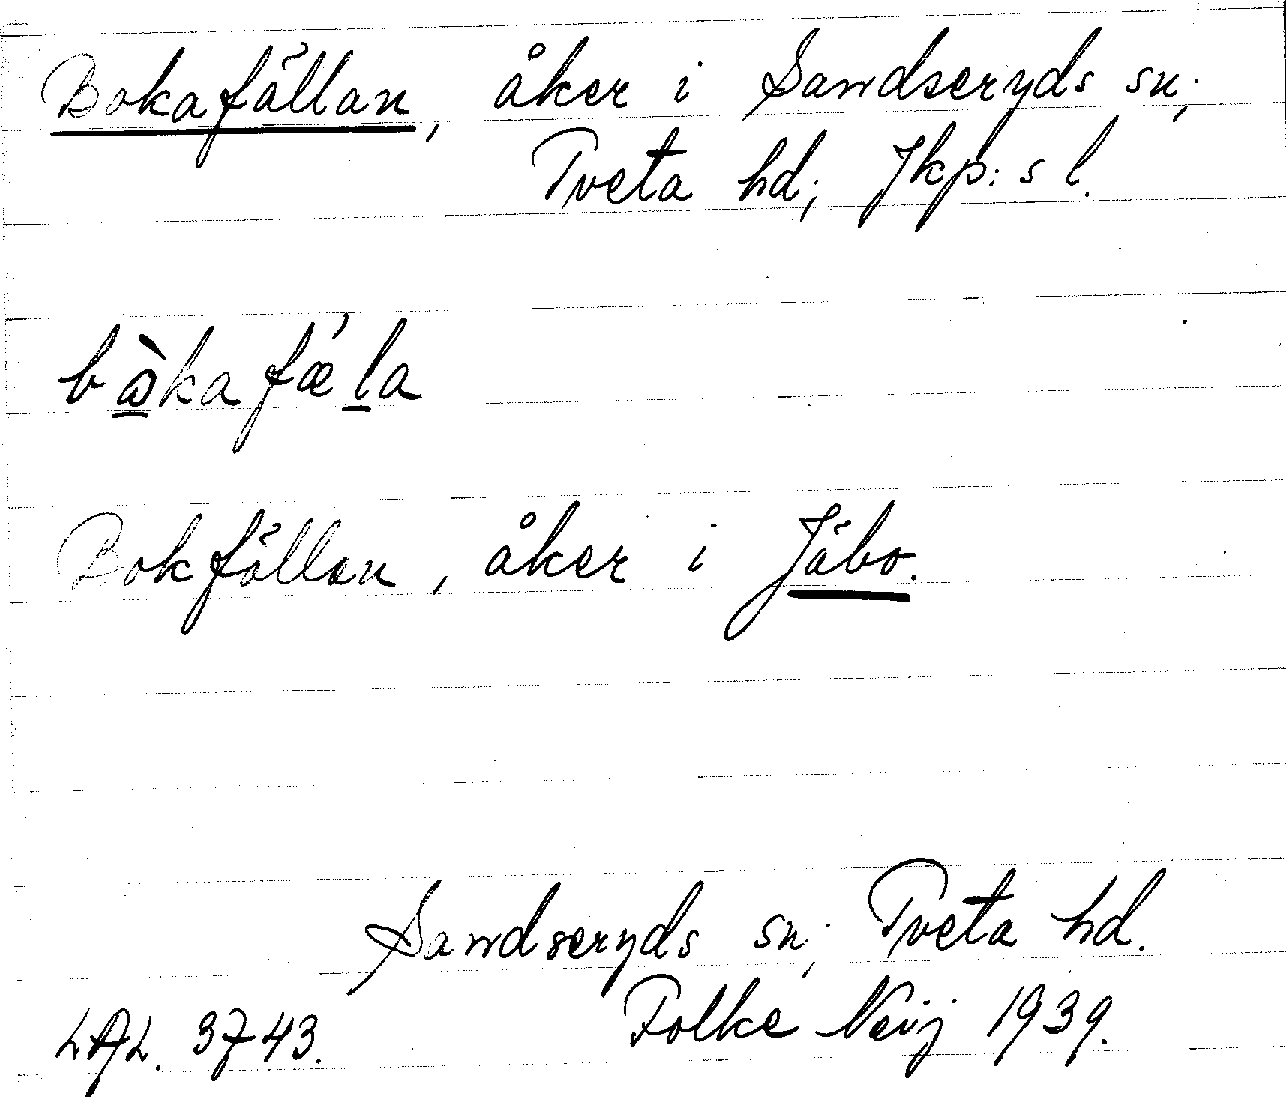 Bokafållan, åker i Sandseryds sn;
Tveta hd; Jkp:s l.
Bokfållan, åker i Jäbo.
Sandseryds sn; Tveta hd.
Folke Neij 1939.
LAL. 3743.